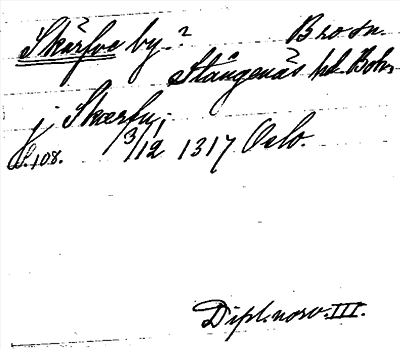 Skärfve by? Bro sn.
Stångenäs hd. Boh.
j Skærfui
S. 108. 3/12 1317 Oslo.
Dipl. norv. III.